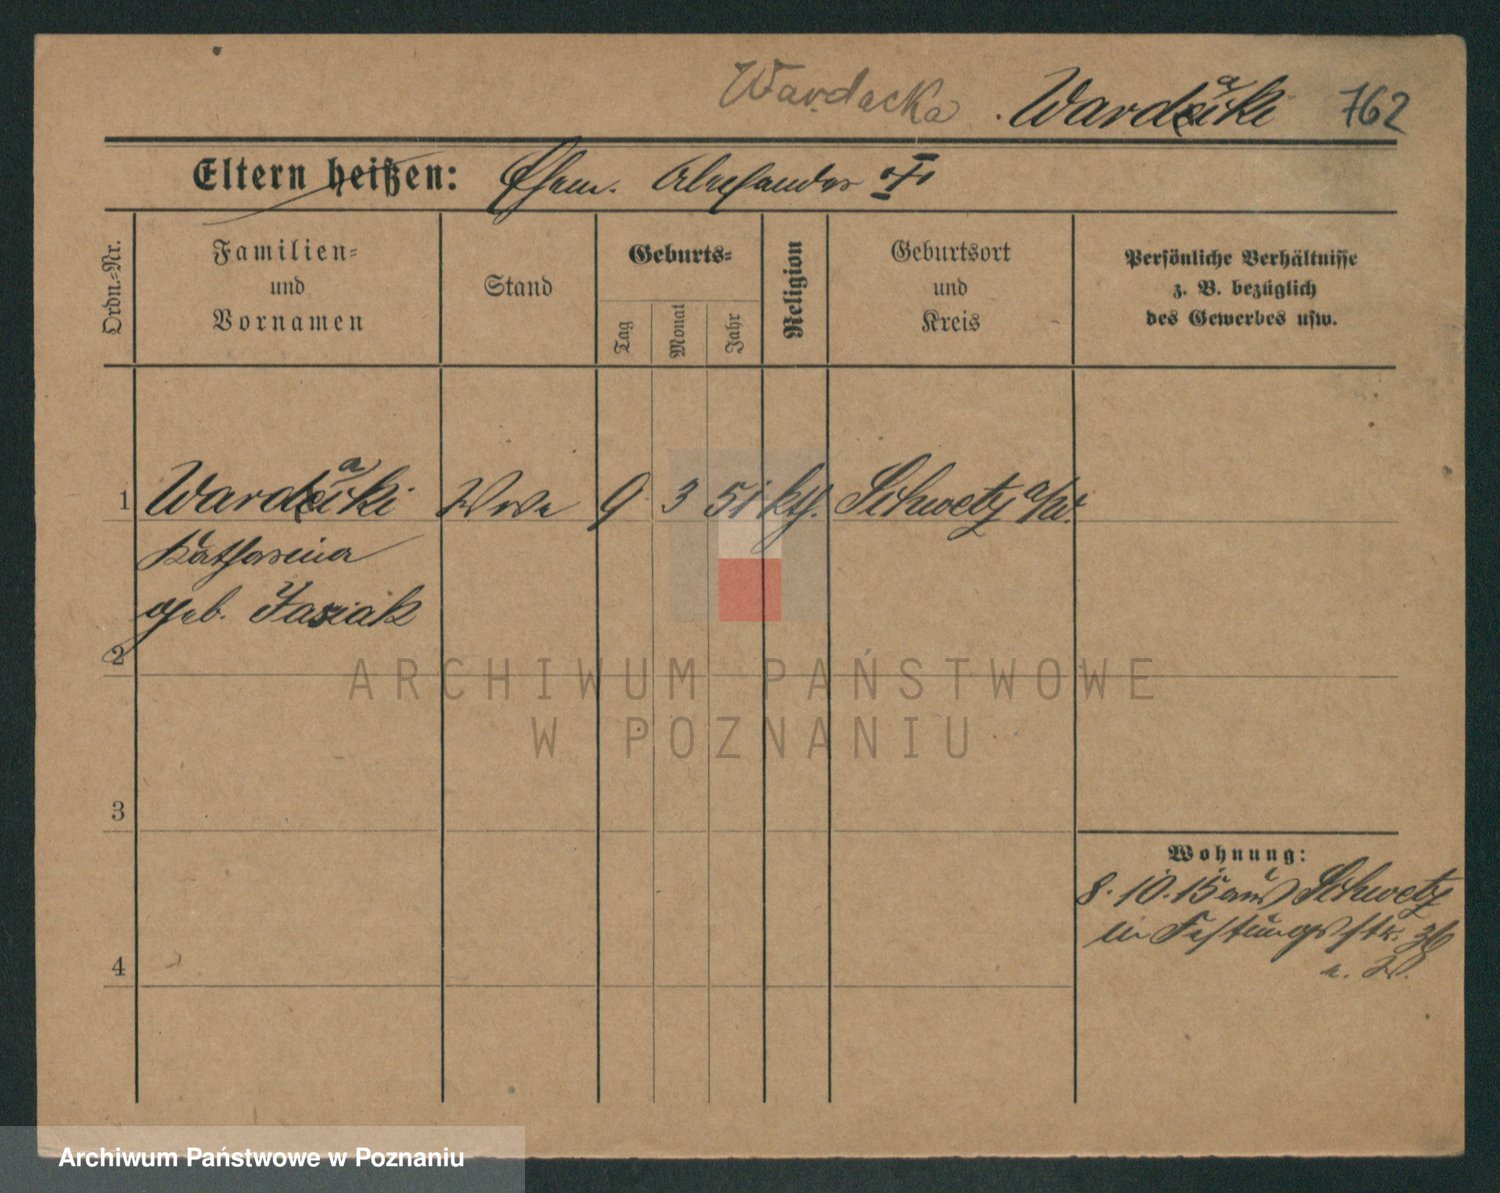 Wardacka Wardacki 762
Eltern heißen: Ehem. Alexander
Ordn.-Nr.
Familien-
und
Vornamen
Stand
Geburts-
Tag
Monat
Jahr
Religion
Geburtsort
und
Kreis
Persönliche Verhältnisse
z. B. bezüglich
des Gewerbes usw.
1 Wardacki Wwe 9 3 51 kth. Schwetz a/W.
Katharina
geb. Jasiak
2
3
4
Wohnung:
8.10.15 aus Schwetz
in Festungsstr.
ARCHIWUM PAŃSTWOWE
W POZNANIU
Archiwum Państwowe w Poznaniu